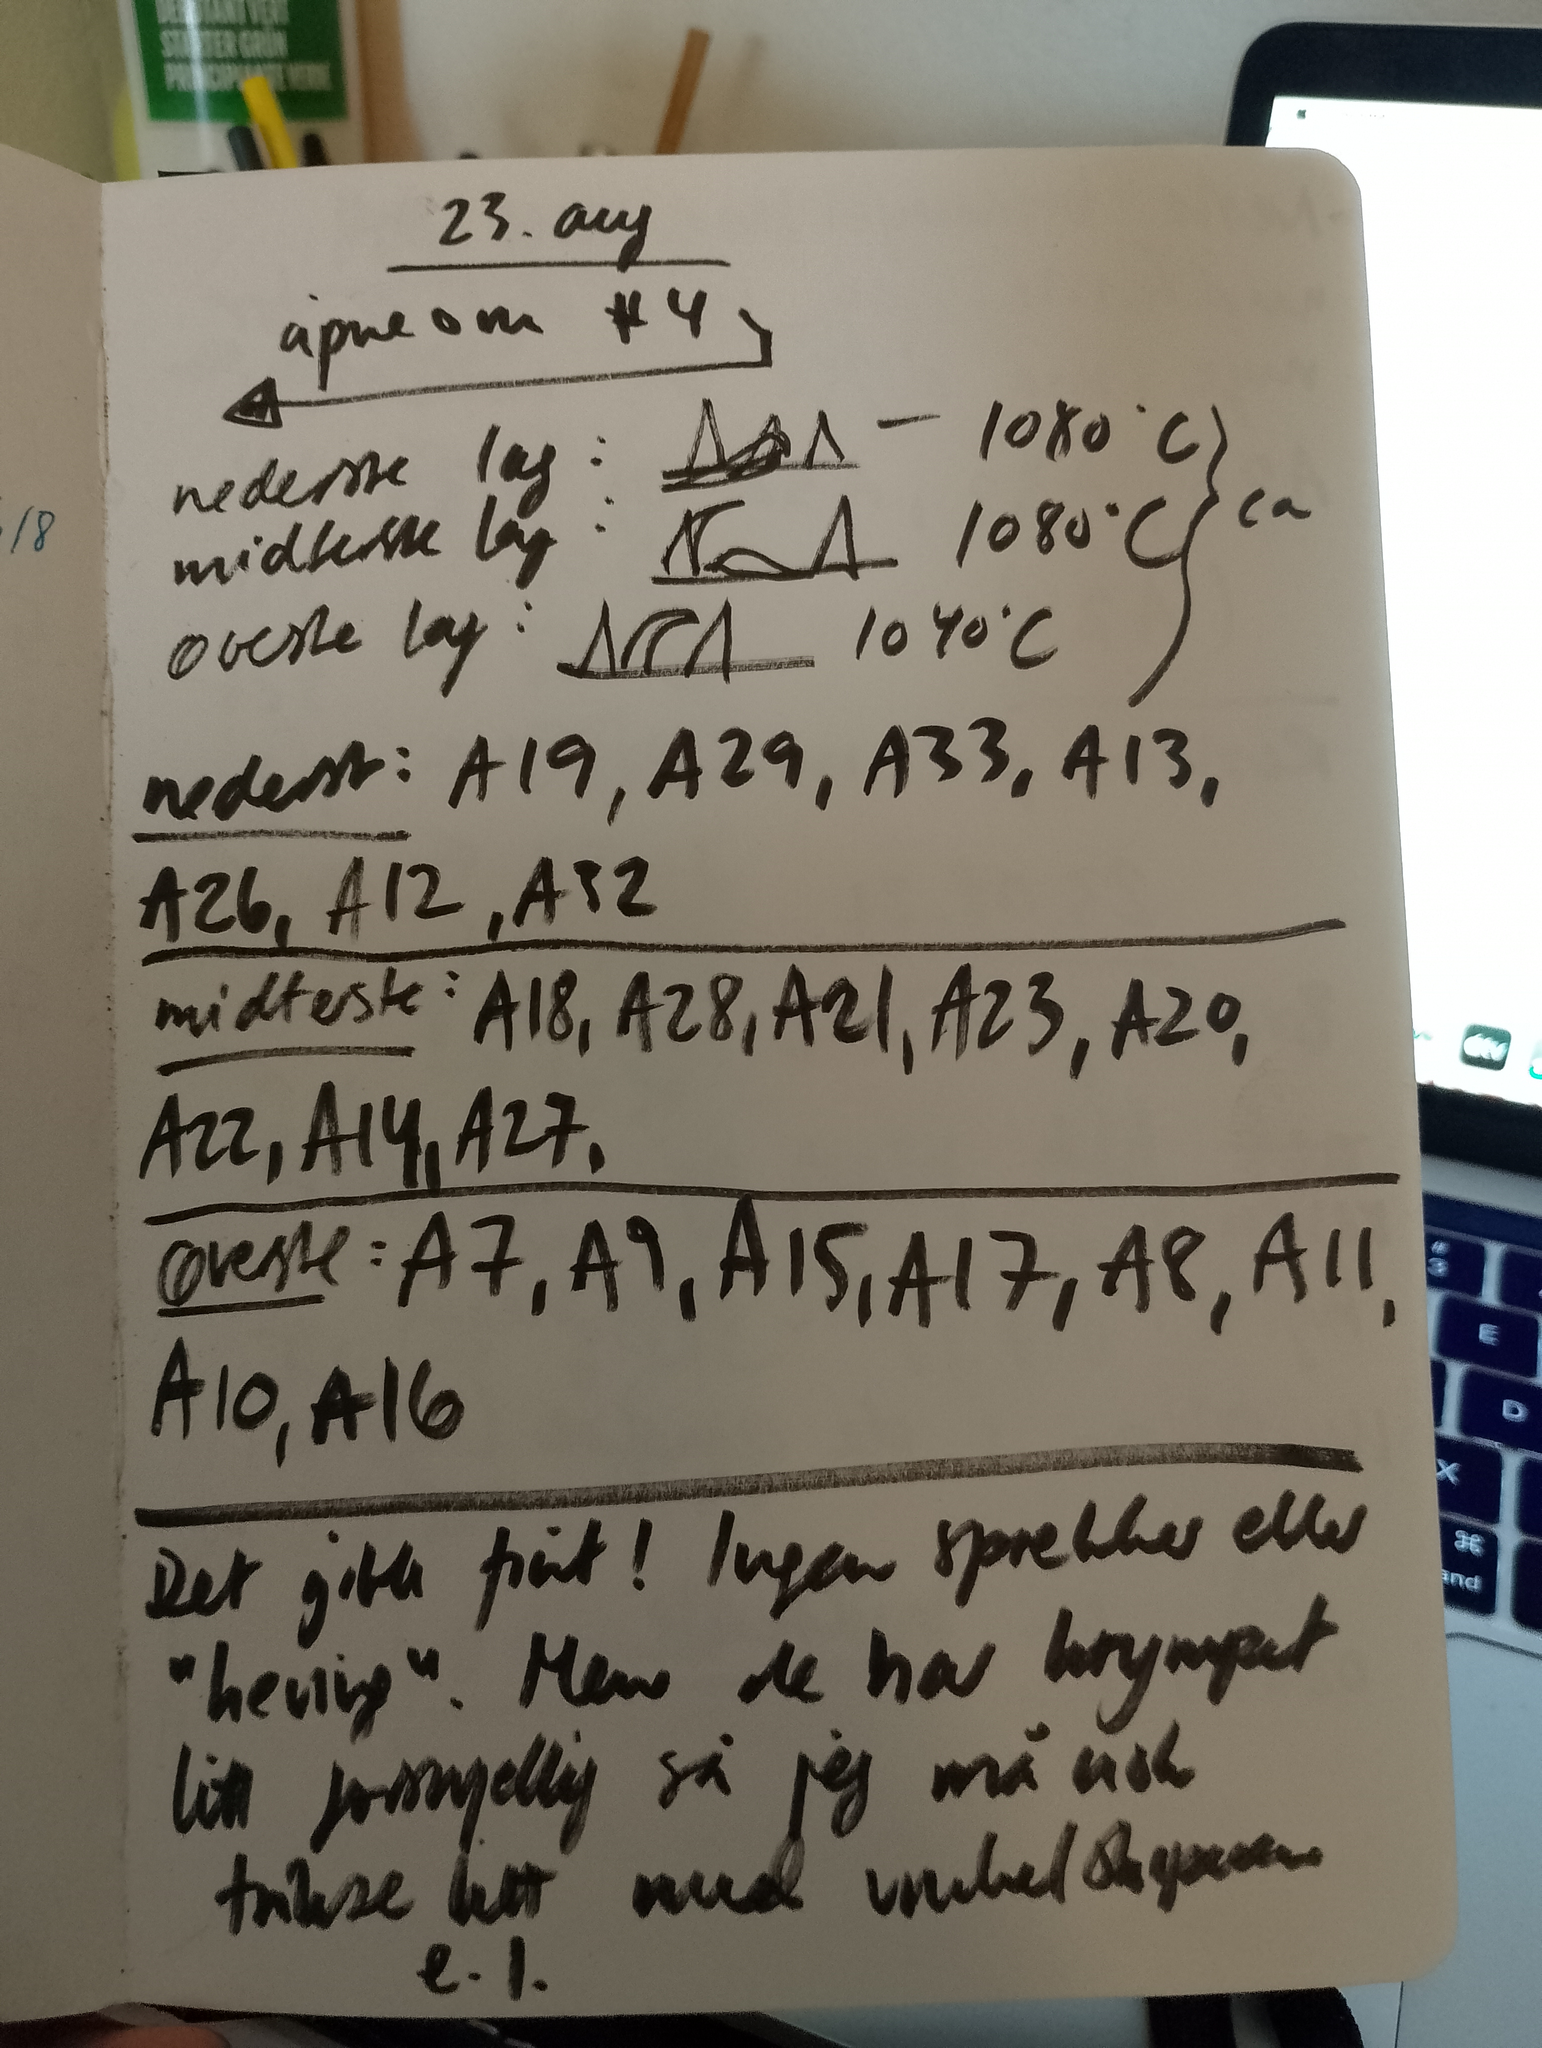 DEBUTANTVERT
STARTER GRÜN
PRINCIPIANTE VERDE
23. aug
åpne ovn #4
nederste lag: — 1080°C
midterste lag: 1080°C
øverste lag: 1040°C
ca
nederst: A19, A29, A33, A13,
A26, A12, A32
midterste: A18, A28, A21, A23, A20,
A22, A14, A27.
øverste: A7, A9, A15, A17, A8, A11,
A10, A16
Det gikk fint! Ingen sprekker eller
"heving". Men de har krympet
litt forskjellig så jeg må nok
trikse litt med vinkelsliperen
e.l.
/18
3
E
D
X
⌘
and